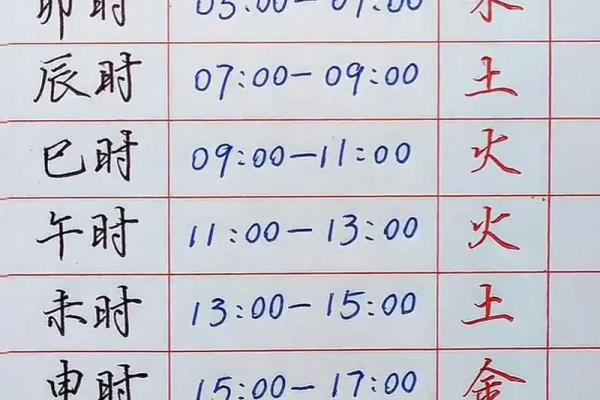 卯时 05:00-07:00 木
辰时 07:00-09:00 土
巳时 09:00-11:00 火
午时 11:00-13:00 火
未时 13:00-15:00 土
申时 15:00-17:00 金